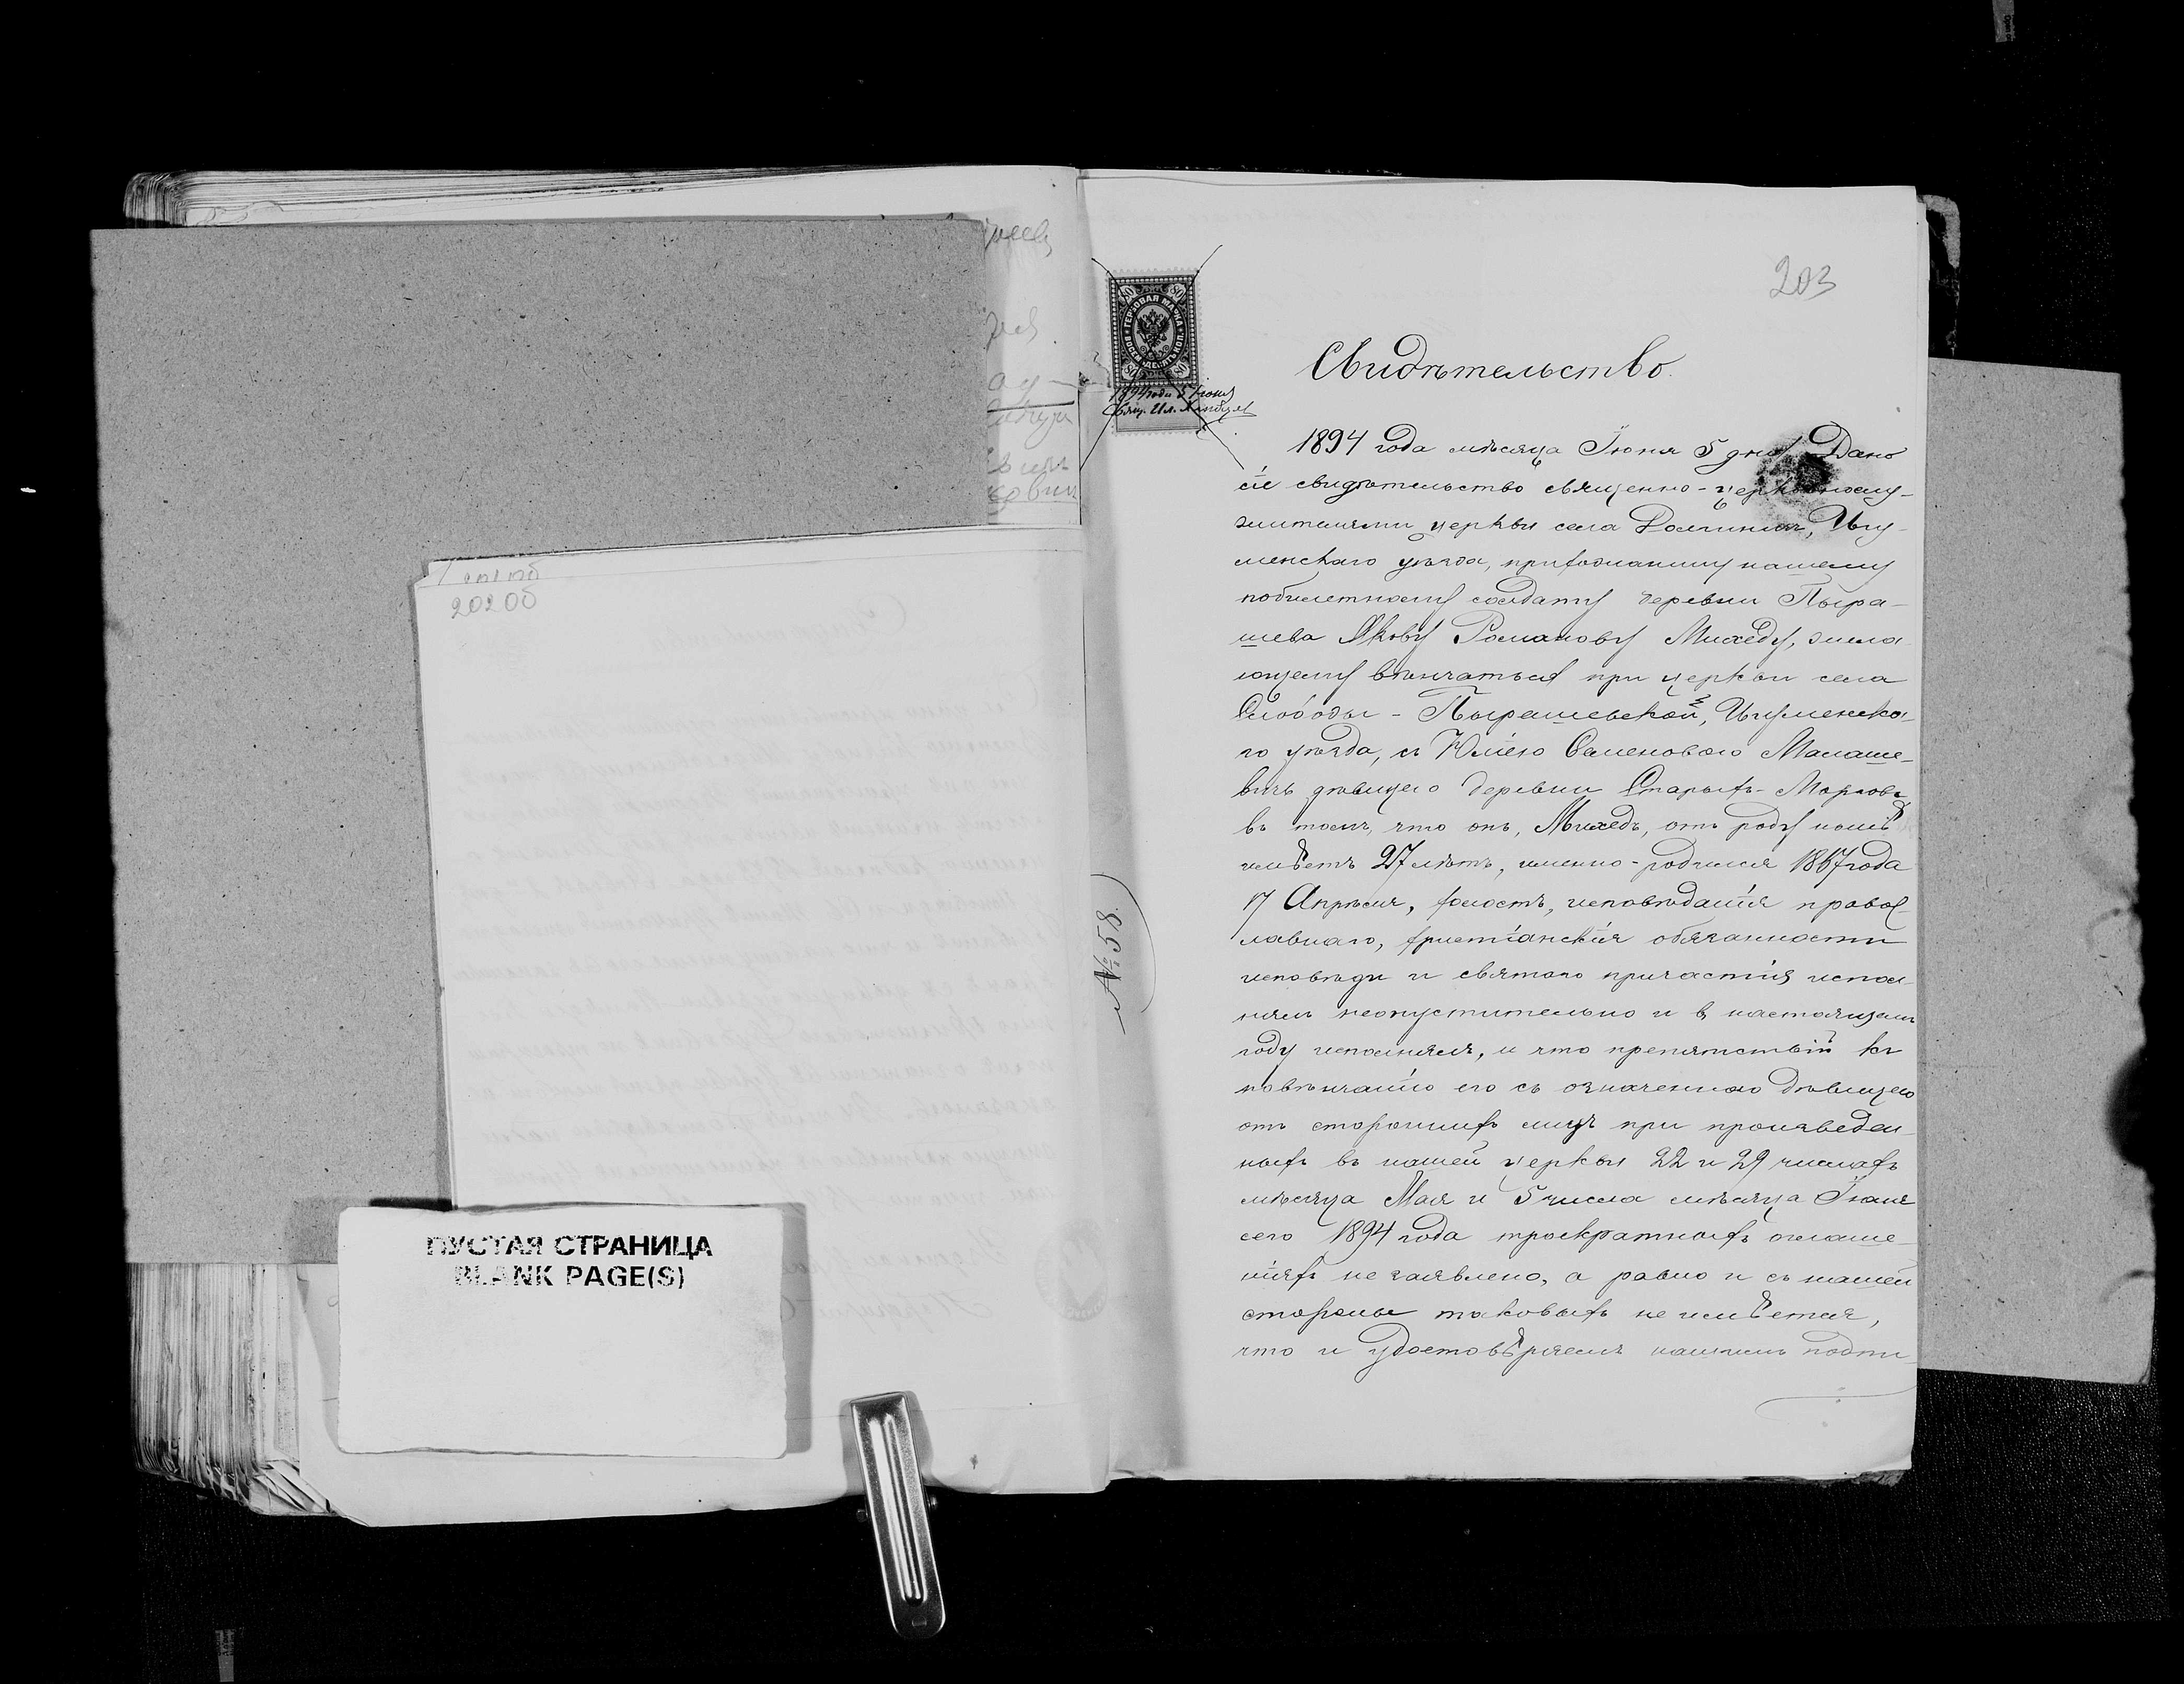 203
ГЕРБОВАЯ МАРКА
80
80
80
80
1894 года 5 Июня
Свящ. Ил.
Свидѣтельство.
1894 года мѣсяца Іюня 5 дня Дано
сіе свидѣтельство священно-церковнослу-
жителями церкви села Игу-
менскаго уѣзда, прихожанину нашему
побилетному солдату деревни Пыра-
шева Якову Романову Михеду, жела
ющему вѣнчаться при церкви села
Слободы-Пырашевской, Игуменска-
го уѣзда, съ Юліею Семеновою Малаше-
вичъ дѣвицею деревни Старыхъ-
въ томъ, что онъ, Михедъ, отъ роду нынѣ
имѣетъ 27 лѣтъ, именно-родился 1867 года
17 Апрѣля, холостъ, исповѣданія правос-
лавнаго, христіанскія обязанности
исповѣди и святаго причастія испол-
нялъ неопустительно и въ настоящемъ
году исполнялъ, и что препятствій къ
повѣнчанію его съ означенною дѣвицею
отъ стороннихъ лицъ при произведен-
ныхъ въ нашей церкви 22 и 29 числахъ
мѣсяца Мая и 5 числа мѣсяца Іюня
сего 1894 года троекратныхъ оглаше-
ніяхъ не заявлено, а равно и съ нашей
стороны таковыхъ не имѣется,
что и удостовѣряемъ нашимъ подпи
№ 58.
202 об
ПУСТАЯ СТРАНИЦА
BLANK PAGE(S)